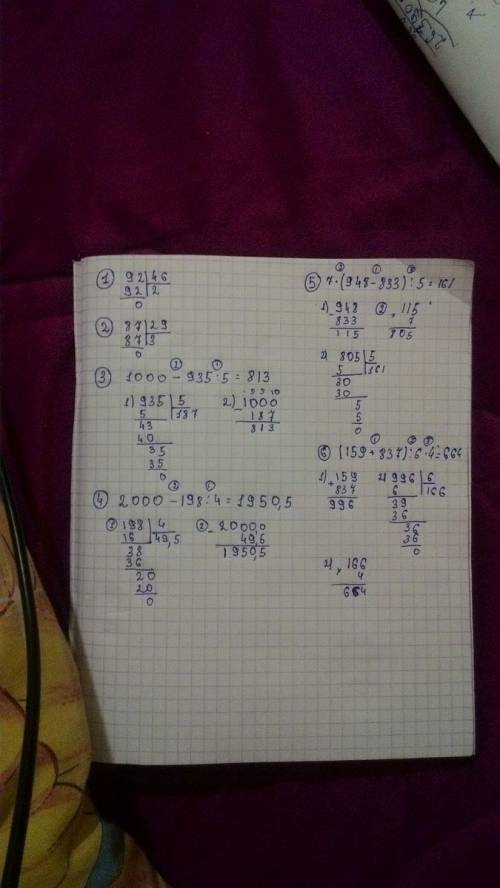 ① 92|46
92|2
0
② 87|29
87|3
0
③ 1000 - 935 : 5 = 813
1) 935|5
5|187
43
40
35
35
0
2) 1000
- 187
813
④ 2000 - 198 : 4 = 1950,5
① 198|4
16|49,5
38
36
20
20
0
② - 2000 0
49,5
1950,5
⑤ 7·(948-833):5=161
1) - 948
833
115
② × 115
7
805
3) 805|5
5|161
30
30
5
5
0
⑥ (159+837):6·4=664
1) + 159
837
996
2) 996|6
6|166
39
36
36
36
0
3) × 166
4
664